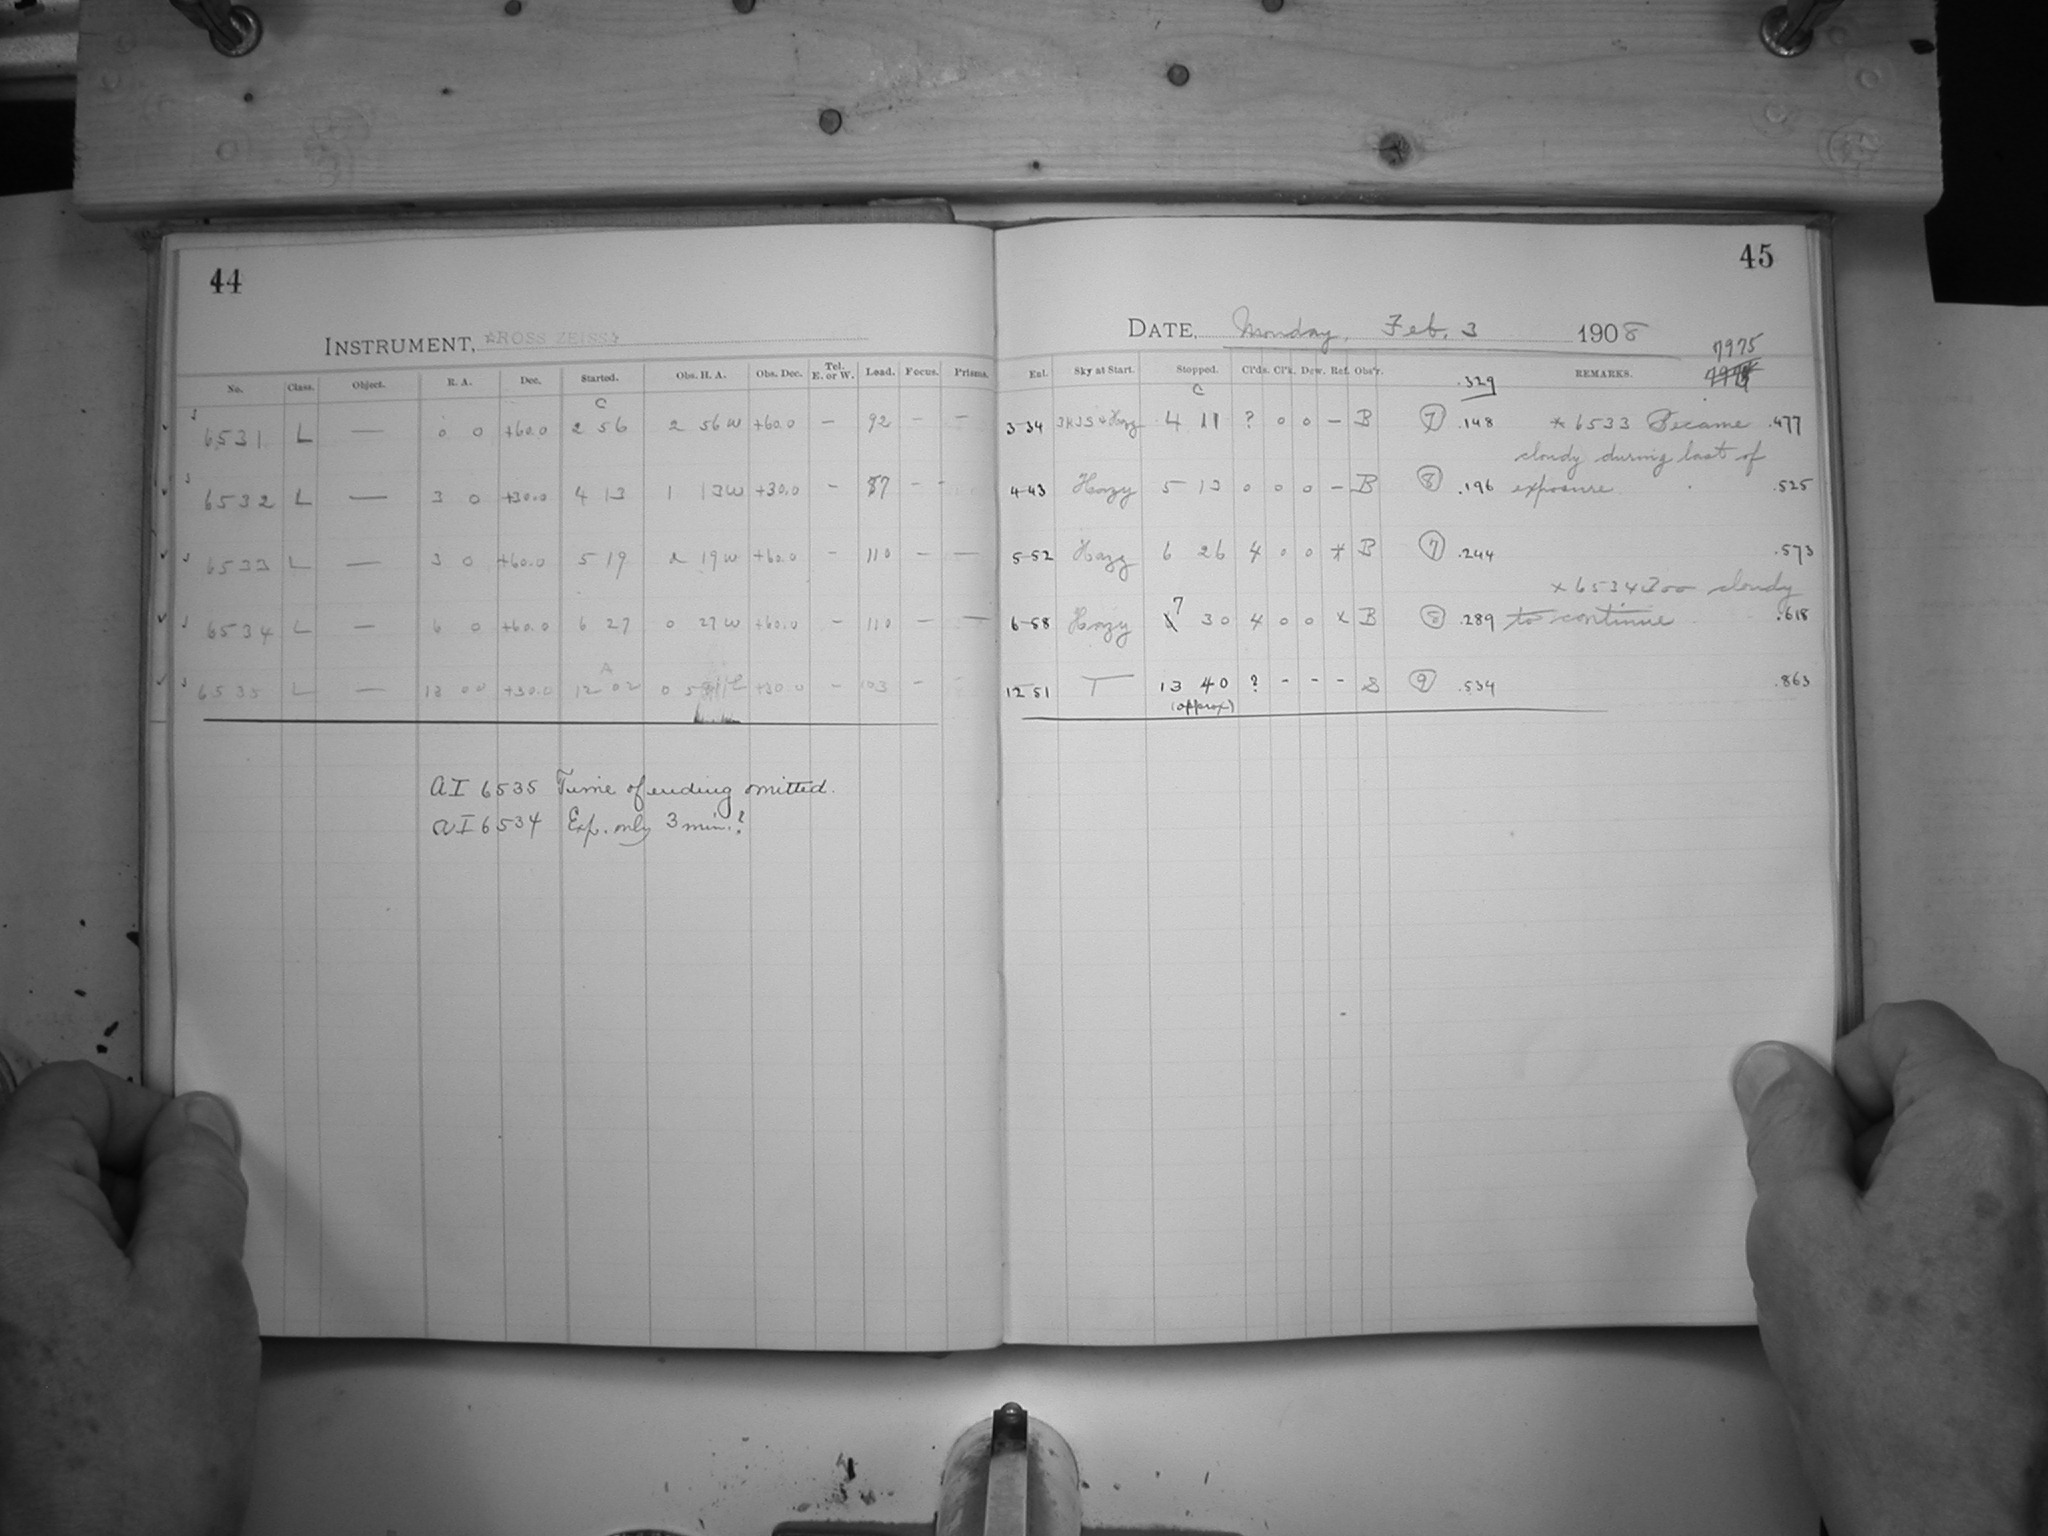 44
INSTRUMENT, ROSS ZEISS
No. Class. Object. R. A. Dec. Started. Obs. H. A. Obs. Dec. Tel. E. or W. Load. Focus. Prisms.
C
6531 L — 0 0 +60.0 2 56 2 56 W +60.0 — 92 — —
6532 L — 3 0 +30.0 4 13 1 13 W +30.0 — 87 — -
6533 L — 3 0 +60.0 5 19 2 19 W +60.0 — 110 — —
6534 L — 6 0 +60.0 6 27 0 27 W +60.0 — 110 — —
A
6535 L — 13 00 +30.0 12 02 0 +30.0 — 103 - -
AI 6535 Time of ending omitted.
AI 6534 Exp. only 3 min.?
45
DATE, Monday, Feb. 3 1908
7975
Ent. Sky at Start. Stopped. Cl'ds. Cl'k. Dew. Ref. Obs'r. .329 REMARKS.
C
3-34 Hazy 4 11 ? 0 0 — B 7 .148 * 6533 Became .477
cloudy during last of
4-43 Hazy 5 13 0 0 0 — B 8 .196 exposure .525
5-52 Hazy 6 26 4 0 0 * B 7 .244 .573
x 6534 Too cloudy
6-58 Hazy 7 30 4 0 0 x B .289 to continue .618
12 51 T 13 40 ? - - - S 9 .534 .863
(approx)